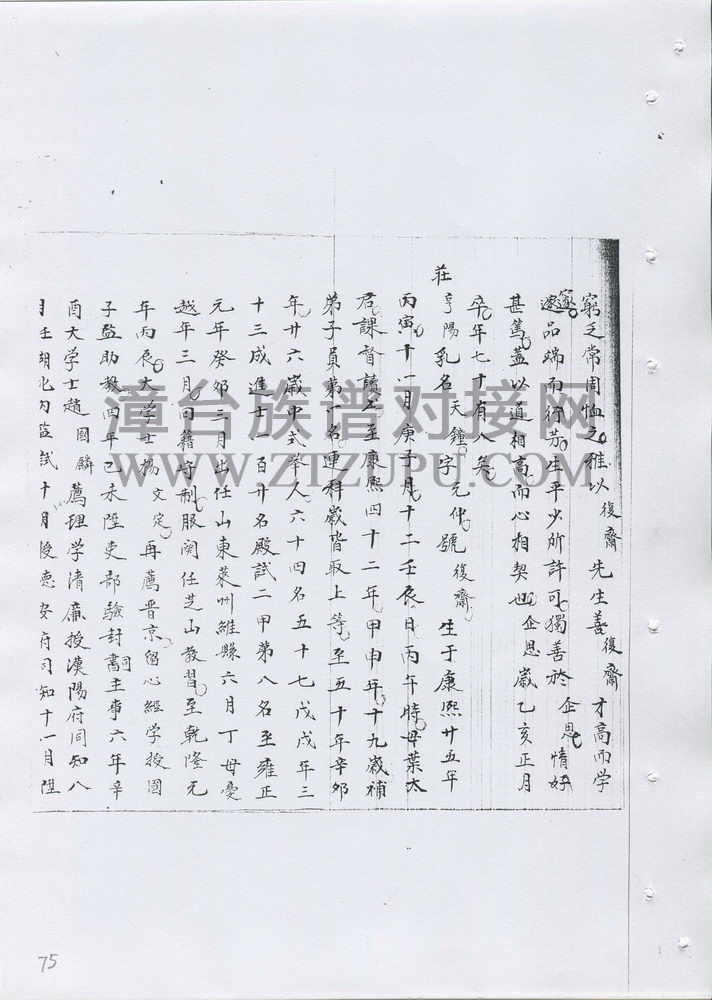 窮乏常周恤之雅以復齋先生善復齋才高而学
邃品端而行芳生平少所許可獨善於企恩情好
甚篤蓋以道相高而心相契也企恩歲乙亥正月
卒年七十有八矣
莊亨陽乳名天鐘字元仲號復齋生于康熙廿五年
丙寅十一月庚子月十二壬辰日丙午時母葉太
君課督讀書至康熙四十二年甲申年十九歲補
弟子員第一名連科歲皆取上等至五十年辛夘
年廿六歲中式举人六十四名五十七戊戌年三
十三成進士一百廿名殿試二甲第八名至雍正
元年癸夘三月出任山東萊州維縣六月丁母憂
越年三月回籍守制服闋任芝山教習至乾隆元
年丙辰大学士楊文定再薦晋京留心經学授國
子監助教四年己未陞吏部驗封司主事六年辛
酉大学士趙國麟薦理学清廉授漢陽府同知八
月壬湖北內监試十月後德安府同知十一月陞
漳台族谱对接网
WWW.ZTZUPU.COM
75